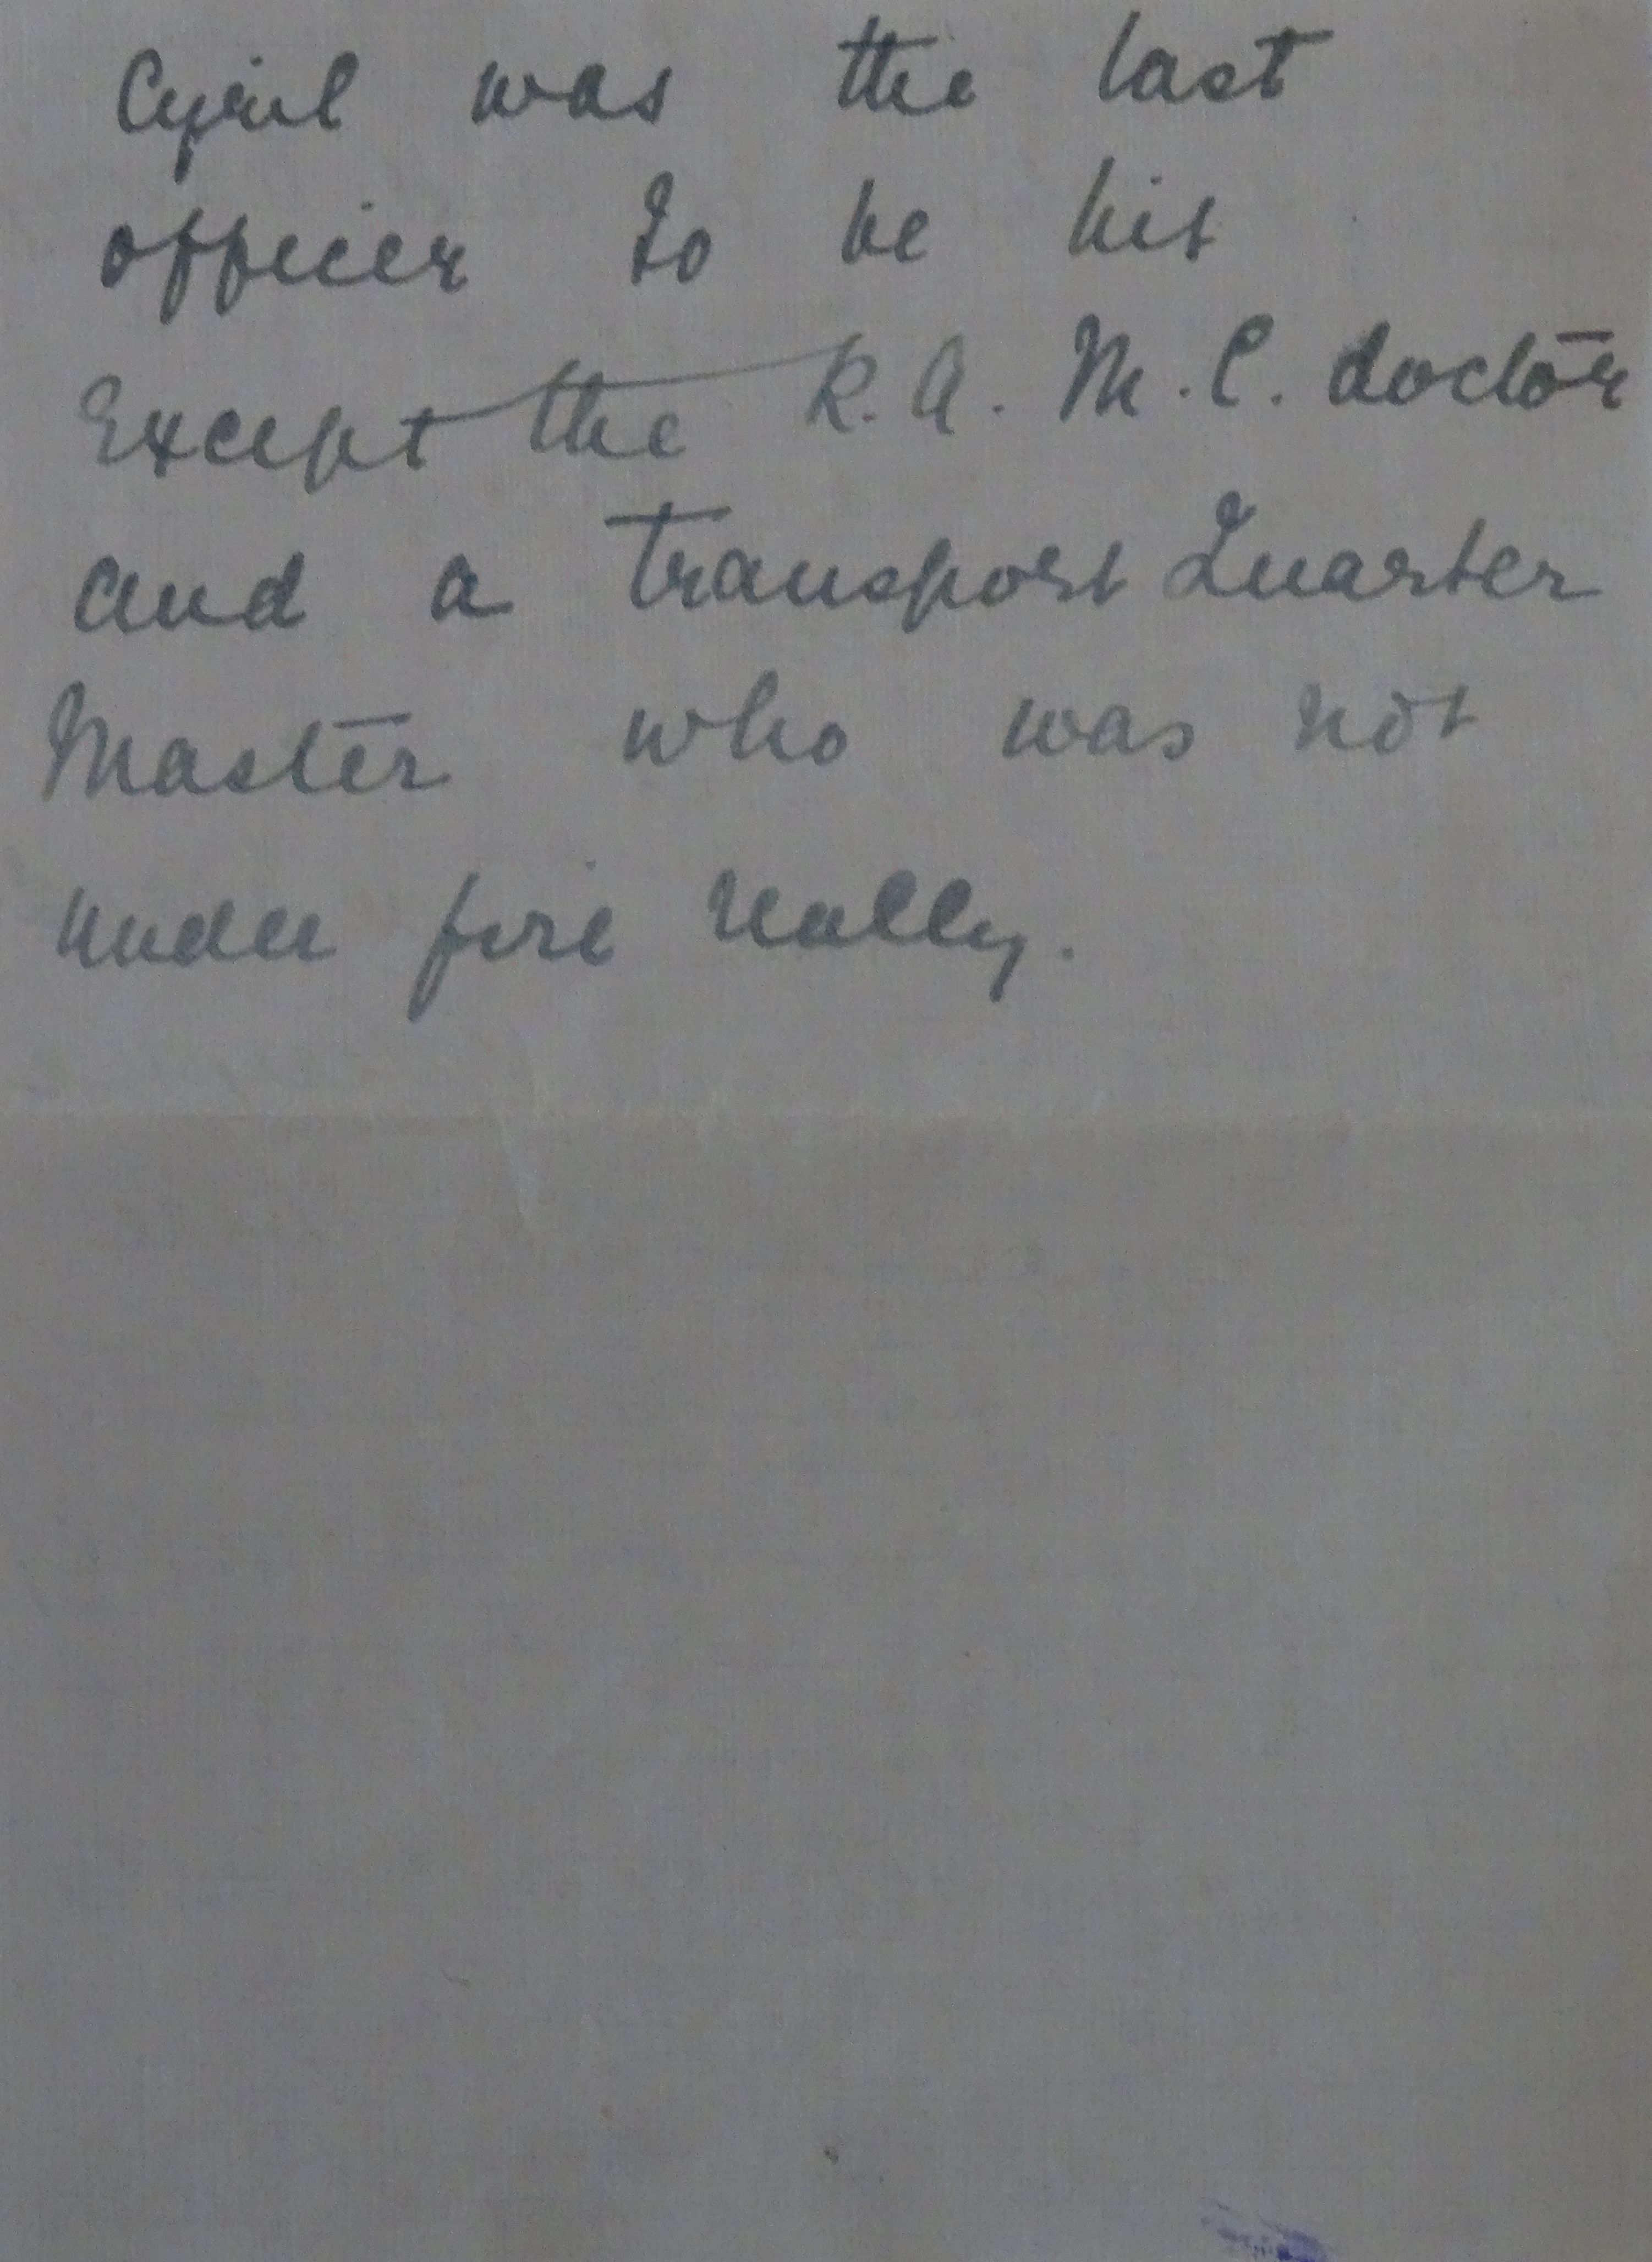 Cyril was the last
officer to be hit
Except the R.A.M.C. doctor
and a transport Quarter
Master who was not
under fire really.